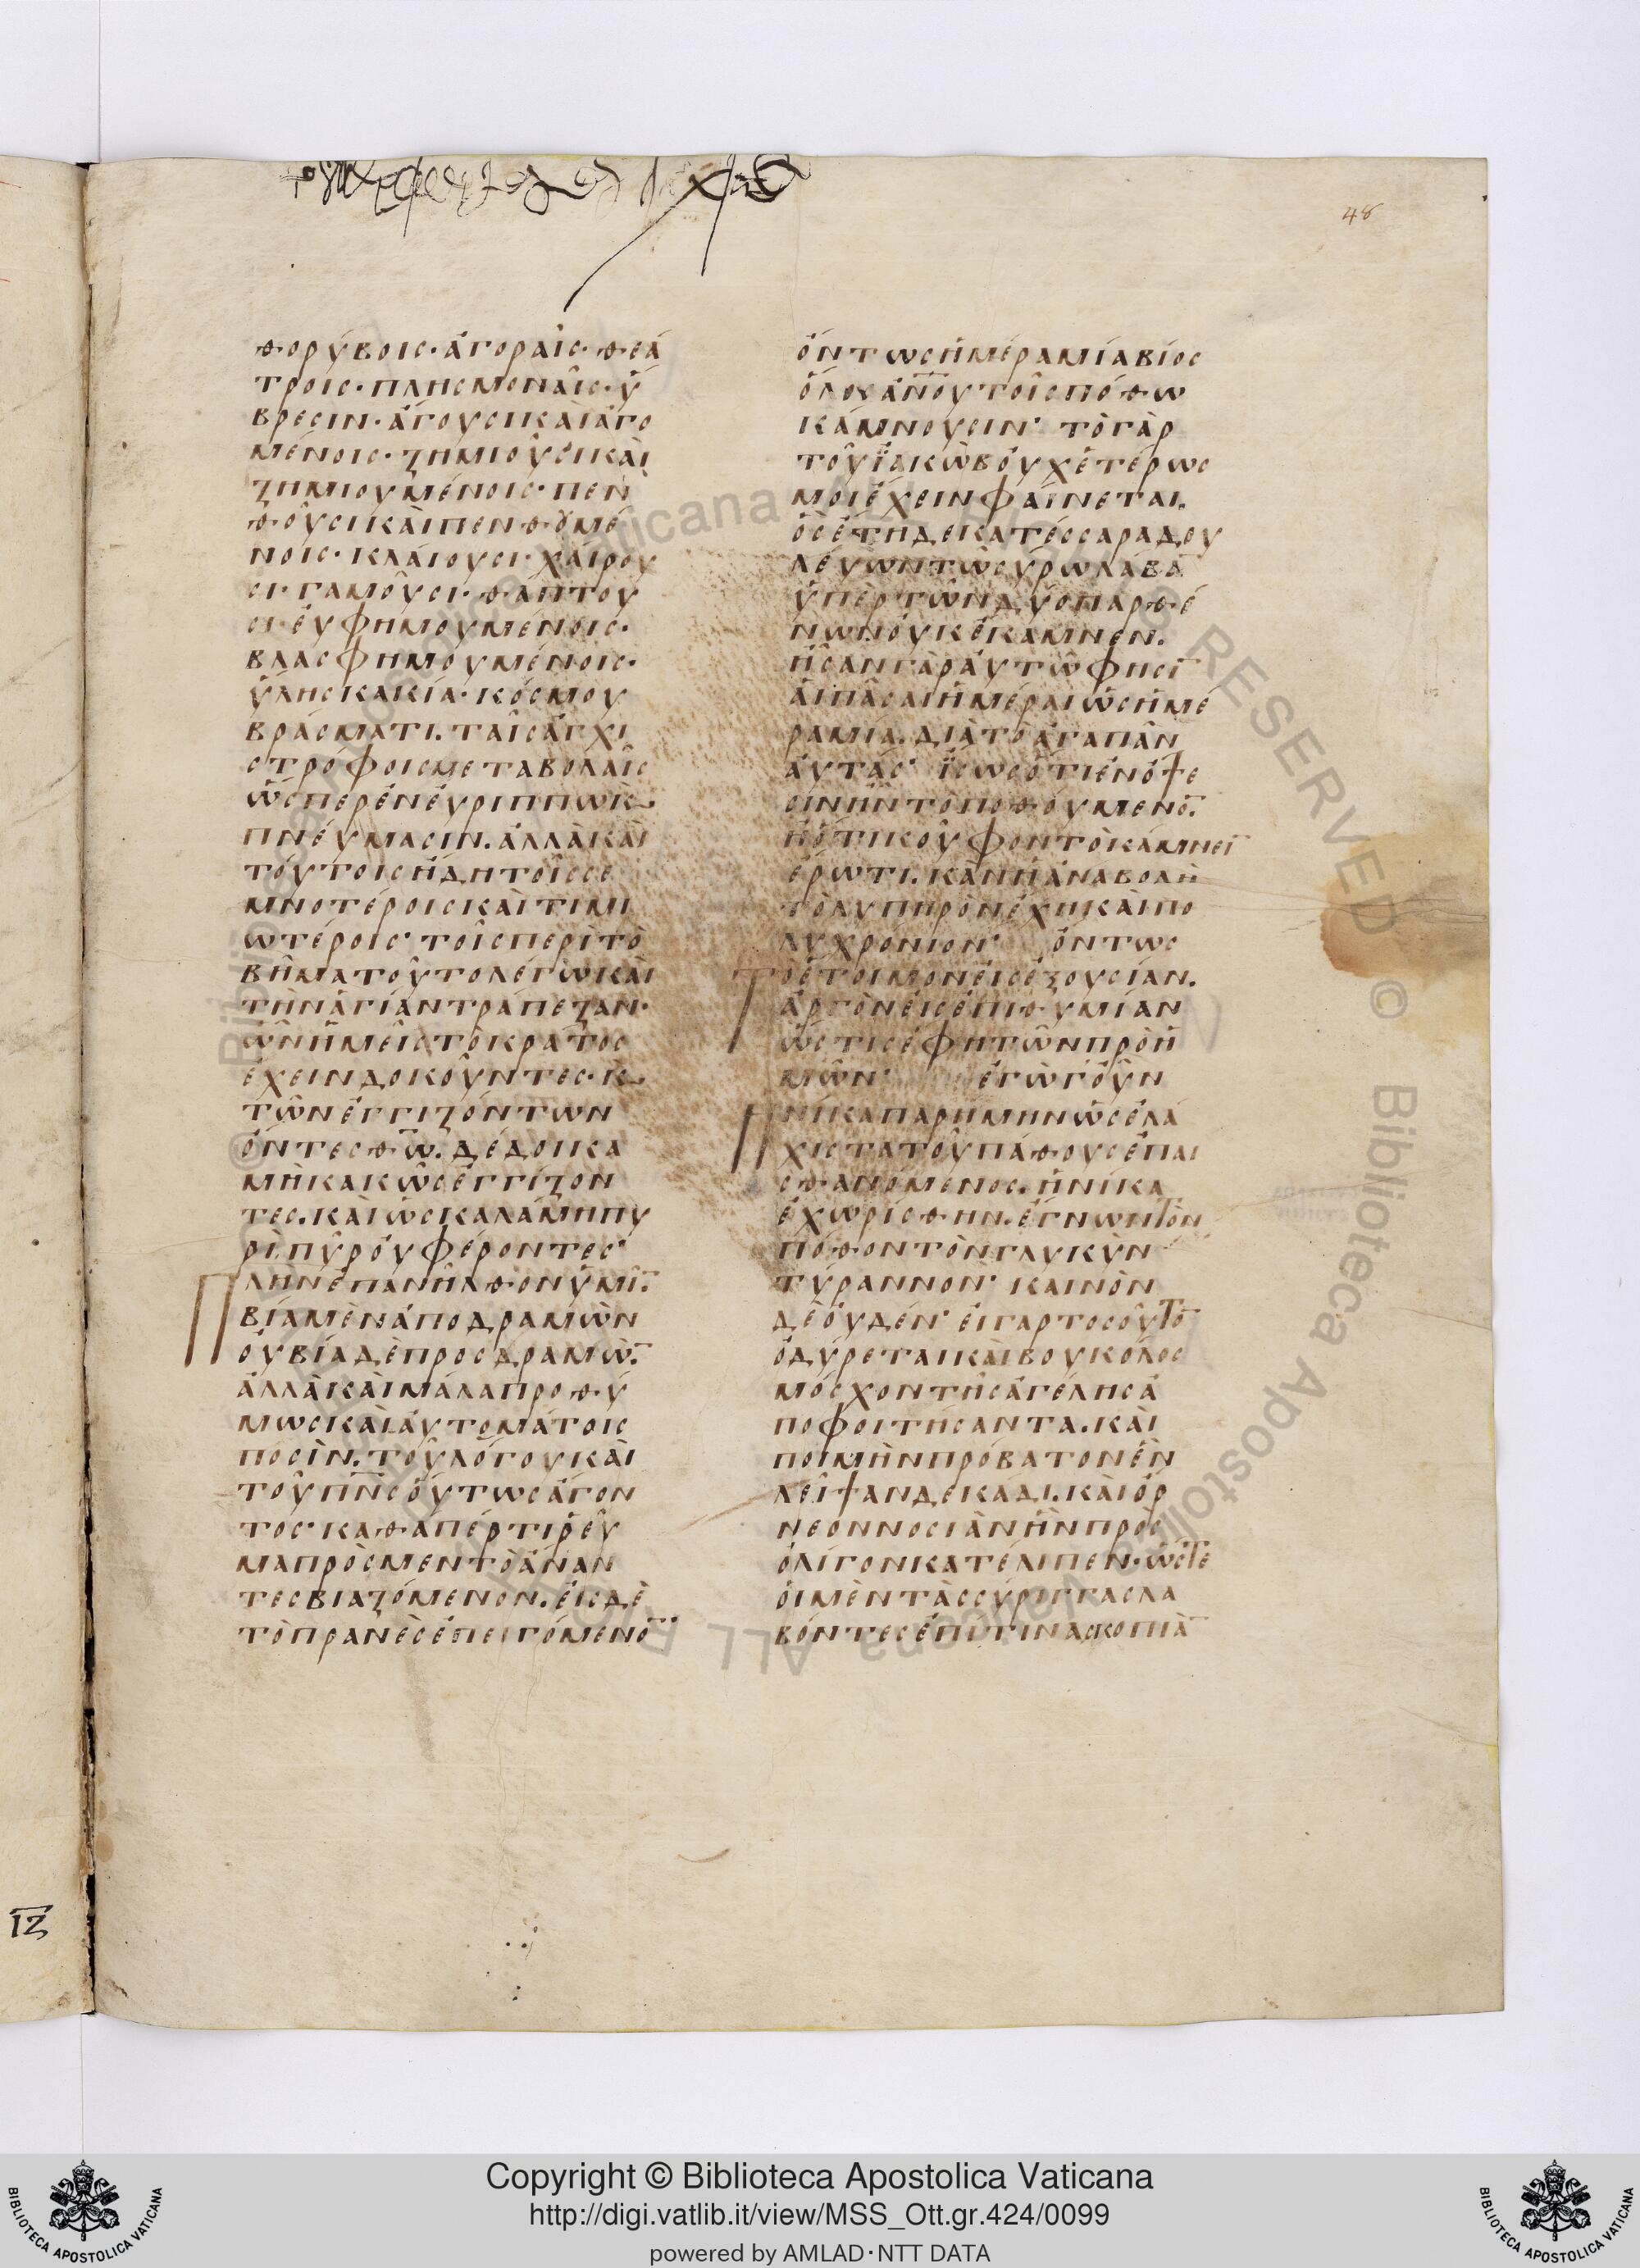 48
θορύβοις· ἀγοραῖς· θεά
τροις· πλησμοναῖς· ὕ
βρεσιν· ἄγουσι καὶ ἀγο
μένοις· ζημιοῦσι καὶ
ζημιουμένοις· πεν
θοῦσι καὶ πενθουμέ
νοις· κλαίουσι· χαίρου
σι· γαμοῦσι· θάπτου
σι· εὐφημουμένοις·
βλασφημουμένοις·
ὕλης κακία· κόσμου
βράσματι. ταῖς ἀγχι
στρόφοις μεταβολαῖς
ὥσπερ ἐν εὐρίππω κ̀
πνεύμασιν. ἀλλὰ καὶ
τούτοις ἤδη τοῖς σε
μνοτέροις καὶ τιμι
ωτέροις· τοῖς περὶ τὸ
βῆμα τοῦτο λέγω καὶ
τὴν ἁγίαν τράπεζαν·
ὧν ἡμεῖς τὸ κράτος
ἔχειν δοκοῦντες· κ̀
τῶν ἐγγιζόντων
ὄντες θω̅. δέδοικα
μὴ κακῶς ἐγγίζον
τες. καὶ ὡς καλάμη πυ
ρὶ πῦρ οὐ φέροντες·
Πλὴν ἐπανῆλθον ὑμῖ̅.
βία μὲν ἀποδραμὼν
οὐ βία δὲ προσδραμώ̅.
ἀλλὰ καὶ μάλα προθύ
μως καὶ αὐτομάτοις
ποσὶν. τοῦ λόγου καὶ
τοῦ πν̅ς οὕτως ἄγον
τος· καθάπερ τι ῥεῦ
μα πρὸς μεν τὸ ἄναν
τες βιαζόμενον. εἰς δὲ
τὸ πρανὲς ἐπειγόμενο̅·
ὄντως ἡμέρα μία βίος
ὅλος αν̅ου τοῖς πόθω
κάμνουσιν· τὸ γὰρ
τοῦ ϊακὼβ οὐχ ἑτέρως
μοι ἔχειν φαίνεται.
ὃς ἔτη δεκατέσσαρα δου
λεύων τῶ σύρω λάβα̅
ὑπὲρ τῶν δύο παρθέ
νων οὐκ ἔκαμνεν.
ἦσαν γὰρ αὐτῶ φησι̅
αἱ πᾶσαι ἡμέραι ὡς ἡμέ
ρα μία. διὰ τὸ ἀγαπᾶν
αὐτάς· ἴσως ὅτι ἐν ὄψε
σιν ἦν τὸ ποθούμενο̅.
ἢ ὅτι κοῦφον τὸ κάμνει̅
ἔρωτι. κἂν ἡ ἀναβολὴ
τὸ λυπηρὸν ἔχη καὶ πο
λυχρόνιον· ὄντως
Τὸ ἕτοιμον εἰς ἐξουσίαν.
ἀργὸν εἰς ἐπιθυμίαν
ὥς τις ἔφη τῶν πρὸ ἡ
μῶν· ἐγὼ γ' οὖν
Ἡνίκα παρήμην ὡς ἐλά
χιστα τοῦ πάθους ἐπαι
σθανόμενος. ἡνίκα
ἐχωρίσθην. ἔγνων τὸν
πόθον τὸν γλυκὺν
τύραννον· καινὸν
δὲ οὐδέν· εἰ γαρ τοσοῦτο̅
ὀδύρεται καὶ βουκόλος
μόσχον τῆς ἀγέλης ἀ
ποφοιτήσαντα. καὶ
ποιμὴν πρόβατον ἓν
λεῖψαν δεκάδι. καὶ ὄρ
νεον νοσιὰν ἣν πρὸς
ὀλίγον κατέλιπεν· ὥστε
οἱ μὲν τὰς σύριγγας λα
βόντες ἐπί τινα σκοπιὰ̅
ιζ
Copyright © Biblioteca Apostolica Vaticana
http://digi.vatlib.it/view/MSS_Ott.gr.424/0099
powered by AMLAD·NTT DATA